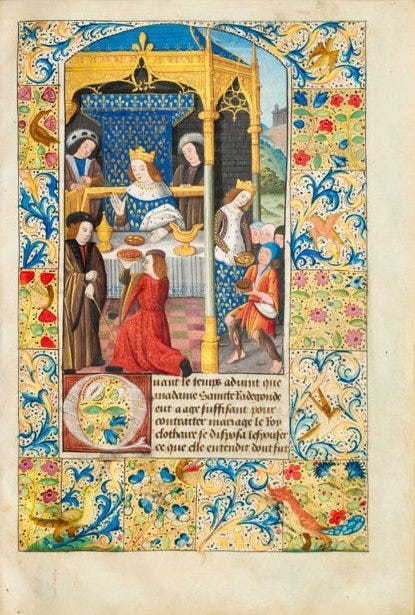 Quant le temps advint que
madame Saincte Radegonde
eut aage suffisant pour
contracter mariage le roy
clothaire se disposa lespouser
ce que elle entendit dont fut